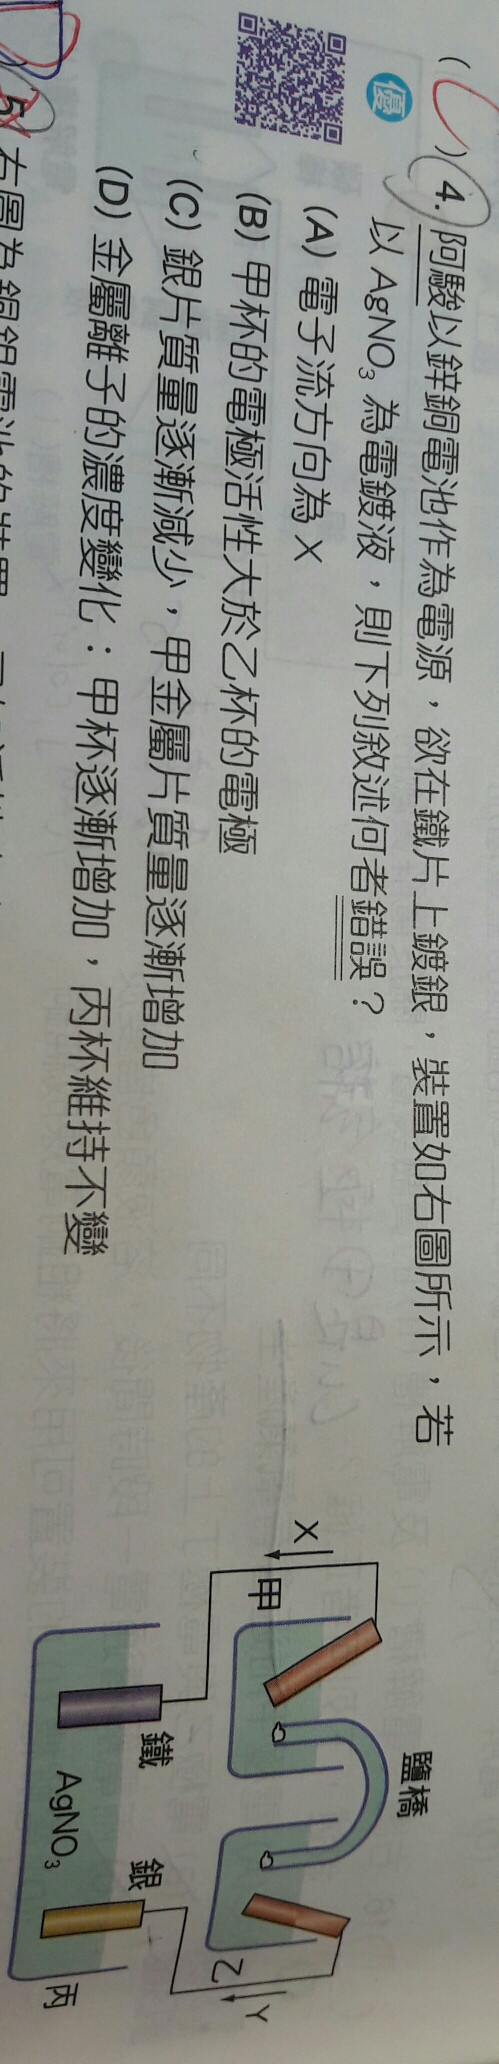 ( ) 4. 阿駿以鋅銅電池作為電源，欲在鐵片上鍍銀，裝置如右圖所示，若
優 以 AgNO₃ 為電鍍液，則下列敘述何者錯誤？
(A) 電子流方向為 X
(B) 甲杯的電極活性大於乙杯的電極
(C) 銀片質量逐漸減少，甲金屬片質量逐漸增加
(D) 金屬離子的濃度變化：甲杯逐漸增加，丙杯維持不變
鹽橋
X
甲
乙
Y
鐵
銀
AgNO₃
丙
5. 右圖為鋅銀電池的裝置